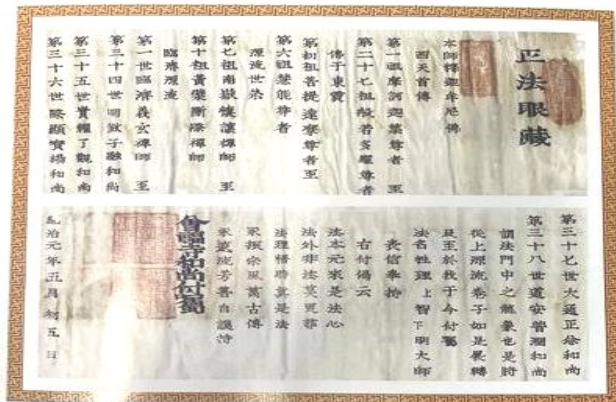 正法眼藏
本師釋迦牟尼佛
西天首傳
第一祖摩訶迦葉尊者 至
第二十七祖般若多羅尊者
傳于東震
第初祖菩提達摩尊者至
第六祖慧能尊者
源流世系
第七祖南嶽懷讓禪師 至
第十祖黃檗斷際禪師
臨濟源流
第一世臨濟義玄禪師 至
第三十四世明子融和尚
第三十五世實輝了觀和尚
第三十六世際顯寶揚和尚
第三十七世大通正徐和尚
第三十八世道安普潤和尚
謂法門中之龍象也是將
從上源流卷子如是展轉
至於我于今付囑
法名性理上智下明大師
表信奉持
右付偈云
法本元來是法心
法外非法莫更
法理悟時真是法
振宗風萬古傳
流芳善自護持
寺和尚付囑
治元年五月初五日